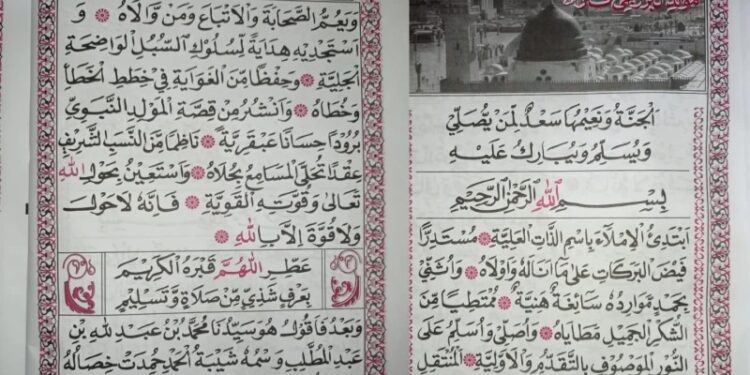 الْجَنَّةُ وَنَعِيْمُهَا سَعْدٌ لِمَنْ يُصَلِّيْ
وَيُسَلِّمُ وَيُبَارِكُ عَلَيْهِ
بِسْمِ اللهِ الرَّحْمٰنِ الرَّحِيْمِ
اَبْتَدِئُ الْإِمْلَاءَ بِاسْمِ الذَّاتِ الْعَلِيَّةِ ۞ مُسْتَدِرًّا
فَيْضَ الْبَرَكَاتِ عَلٰى مَا اَنَالَهُ وَاَوْلَاهُ ۞ وَاُثَنِّيْ
بِحَمْدٍ مَوَارِدُهُ سَائِغَةٌ هَنِيَّةٌ ۞ مُمْتَطِيًا مِنَ
الشُّكْرِ الْجَمِيْلِ مَطَايَاهُ ۞ وَاُصَلِّيْ وَاُسَلِّمُ عَلَى
النُّوْرِ الْمَوْصُوْفِ بِالتَّقَدُّمِ وَالْاَوَّلِيَّةِ ۞ الْمُنْتَقِلِ
وَيَعُمُّ الصَّحَابَةَ وَالْاَتْبَاعَ وَمَنْ وَالَاهُ ۞ وَ
اَسْتَجْدِيْهِ هِدَايَةً لِسُلُوْكِ السُّبُلِ الْوَاضِحَةِ
الْجَلِيَّةِ ۞ وَحِفْظًا مِنَ الْغَوَايَةِ فِيْ خِطَطِ الْخَطَأِ
وَخُطَاهُ ۞ وَاَنْشُرُ مِنْ قِصَّةِ الْمَوْلِدِ النَّبَوِيِّ
بُرُوْدًا حِسَانًا عَبْقَرِيَّةً ۞ نَاظِمًا مِنَ النَّسَبِ الشَّرِيْفِ
عِقْدًا تُحَلَّى الْمَسَامِعُ بِحُلَاهُ ۞ وَاَسْتَعِيْنُ بِحَوْلِ اللهِ
تَعَالٰى وَقُوَّتِهِ الْقَوِيَّةِ ۞ فَاِنَّهُ لَاحَوْلَ
وَلَاقُوَّةَ اِلَّابِاللهِ ۞
عَطِّرِ اللّٰهُمَّ قَبْرَهُ الْكَرِيْمَ
بِعَرْفٍ شَذِيٍّ مِنْ صَلَاةٍ وَتَسْلِيْمٍ
وَبَعْدُ فَاَقُوْلُ هُوَ سَيِّدُنَا مُحَمَّدُ بْنُ عَبْدِ اللهِ بْنِ
عَبْدِ الْمُطَّلِبِ وَاسْمُهُ شَيْبَةُ الْحَمْدِ حُمِدَتْ خِصَالُهُ